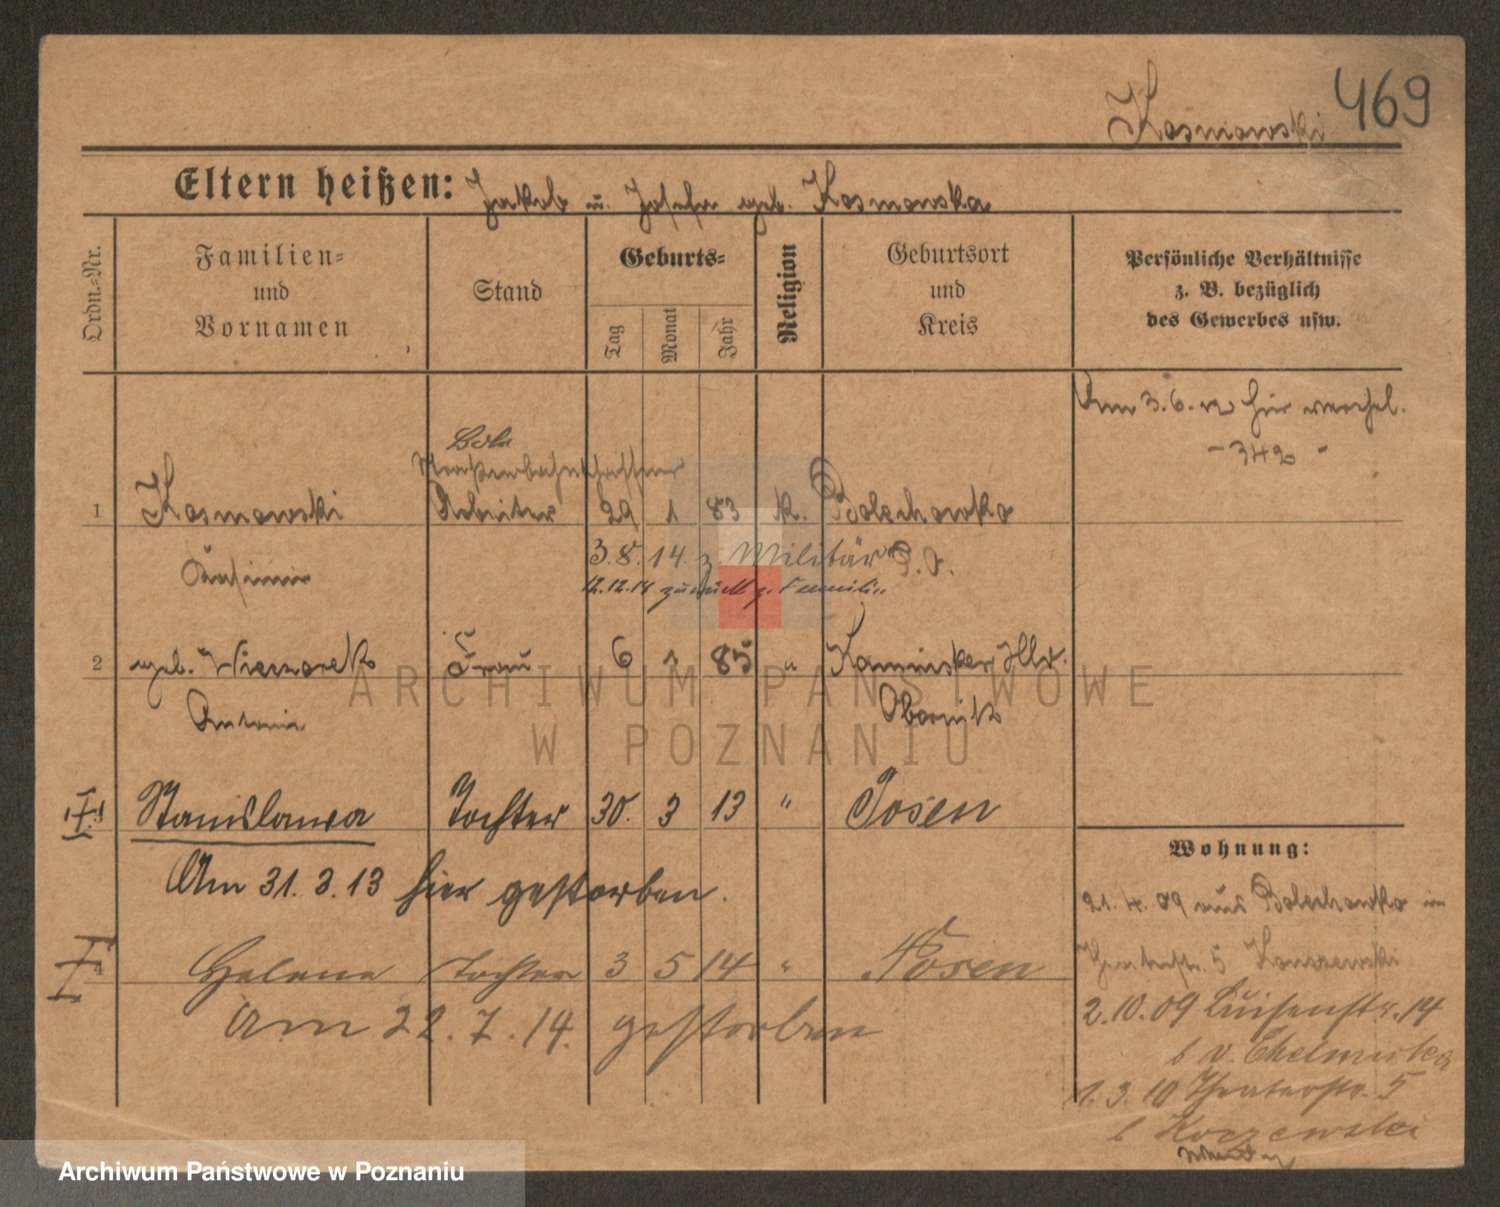 469
Kosmowski
Eltern heißen: Jakob u. Josefa geb. Kosmowska
Ordn.-Nr.
Familien-
und
Vornamen
Stand
Geburts-
Tag
Monat
Jahr
Religion
Geburtsort
und
Kreis
Persönliche Verhältnisse
z. B. bezüglich
des Gewerbes usw.
Am 3.6. hier
- 342 -
Bote
Straßenbahnschaffner
1 Kosmowski Arbeiter 29 1 83 k. Bolechowko
Kasimir
3.8.14 z. Militär
12.12.18 zurück z. Familie
2 geb. Wieczorek Frau 6 1 85 " Kaminsker Hld.
Antonie Obornik
3 Stanislawa Tochter 30. 3 13 " Posen
Am 31.3.13 hier gestorben.
4 Helene Tochter 3 5 14 " Posen
Am 22.7.14. gestorben
Wohnung:
21.4.09 aus Bolechowko
Theaterstr. 5
2.10.09 Luisenstr. 14
b v. Chelmicka
1.3.10 Theaterstr. 5
b Koczewski
ARCHIWUM PAŃSTWOWE
W POZNANIU
Archiwum Państwowe w Poznaniu